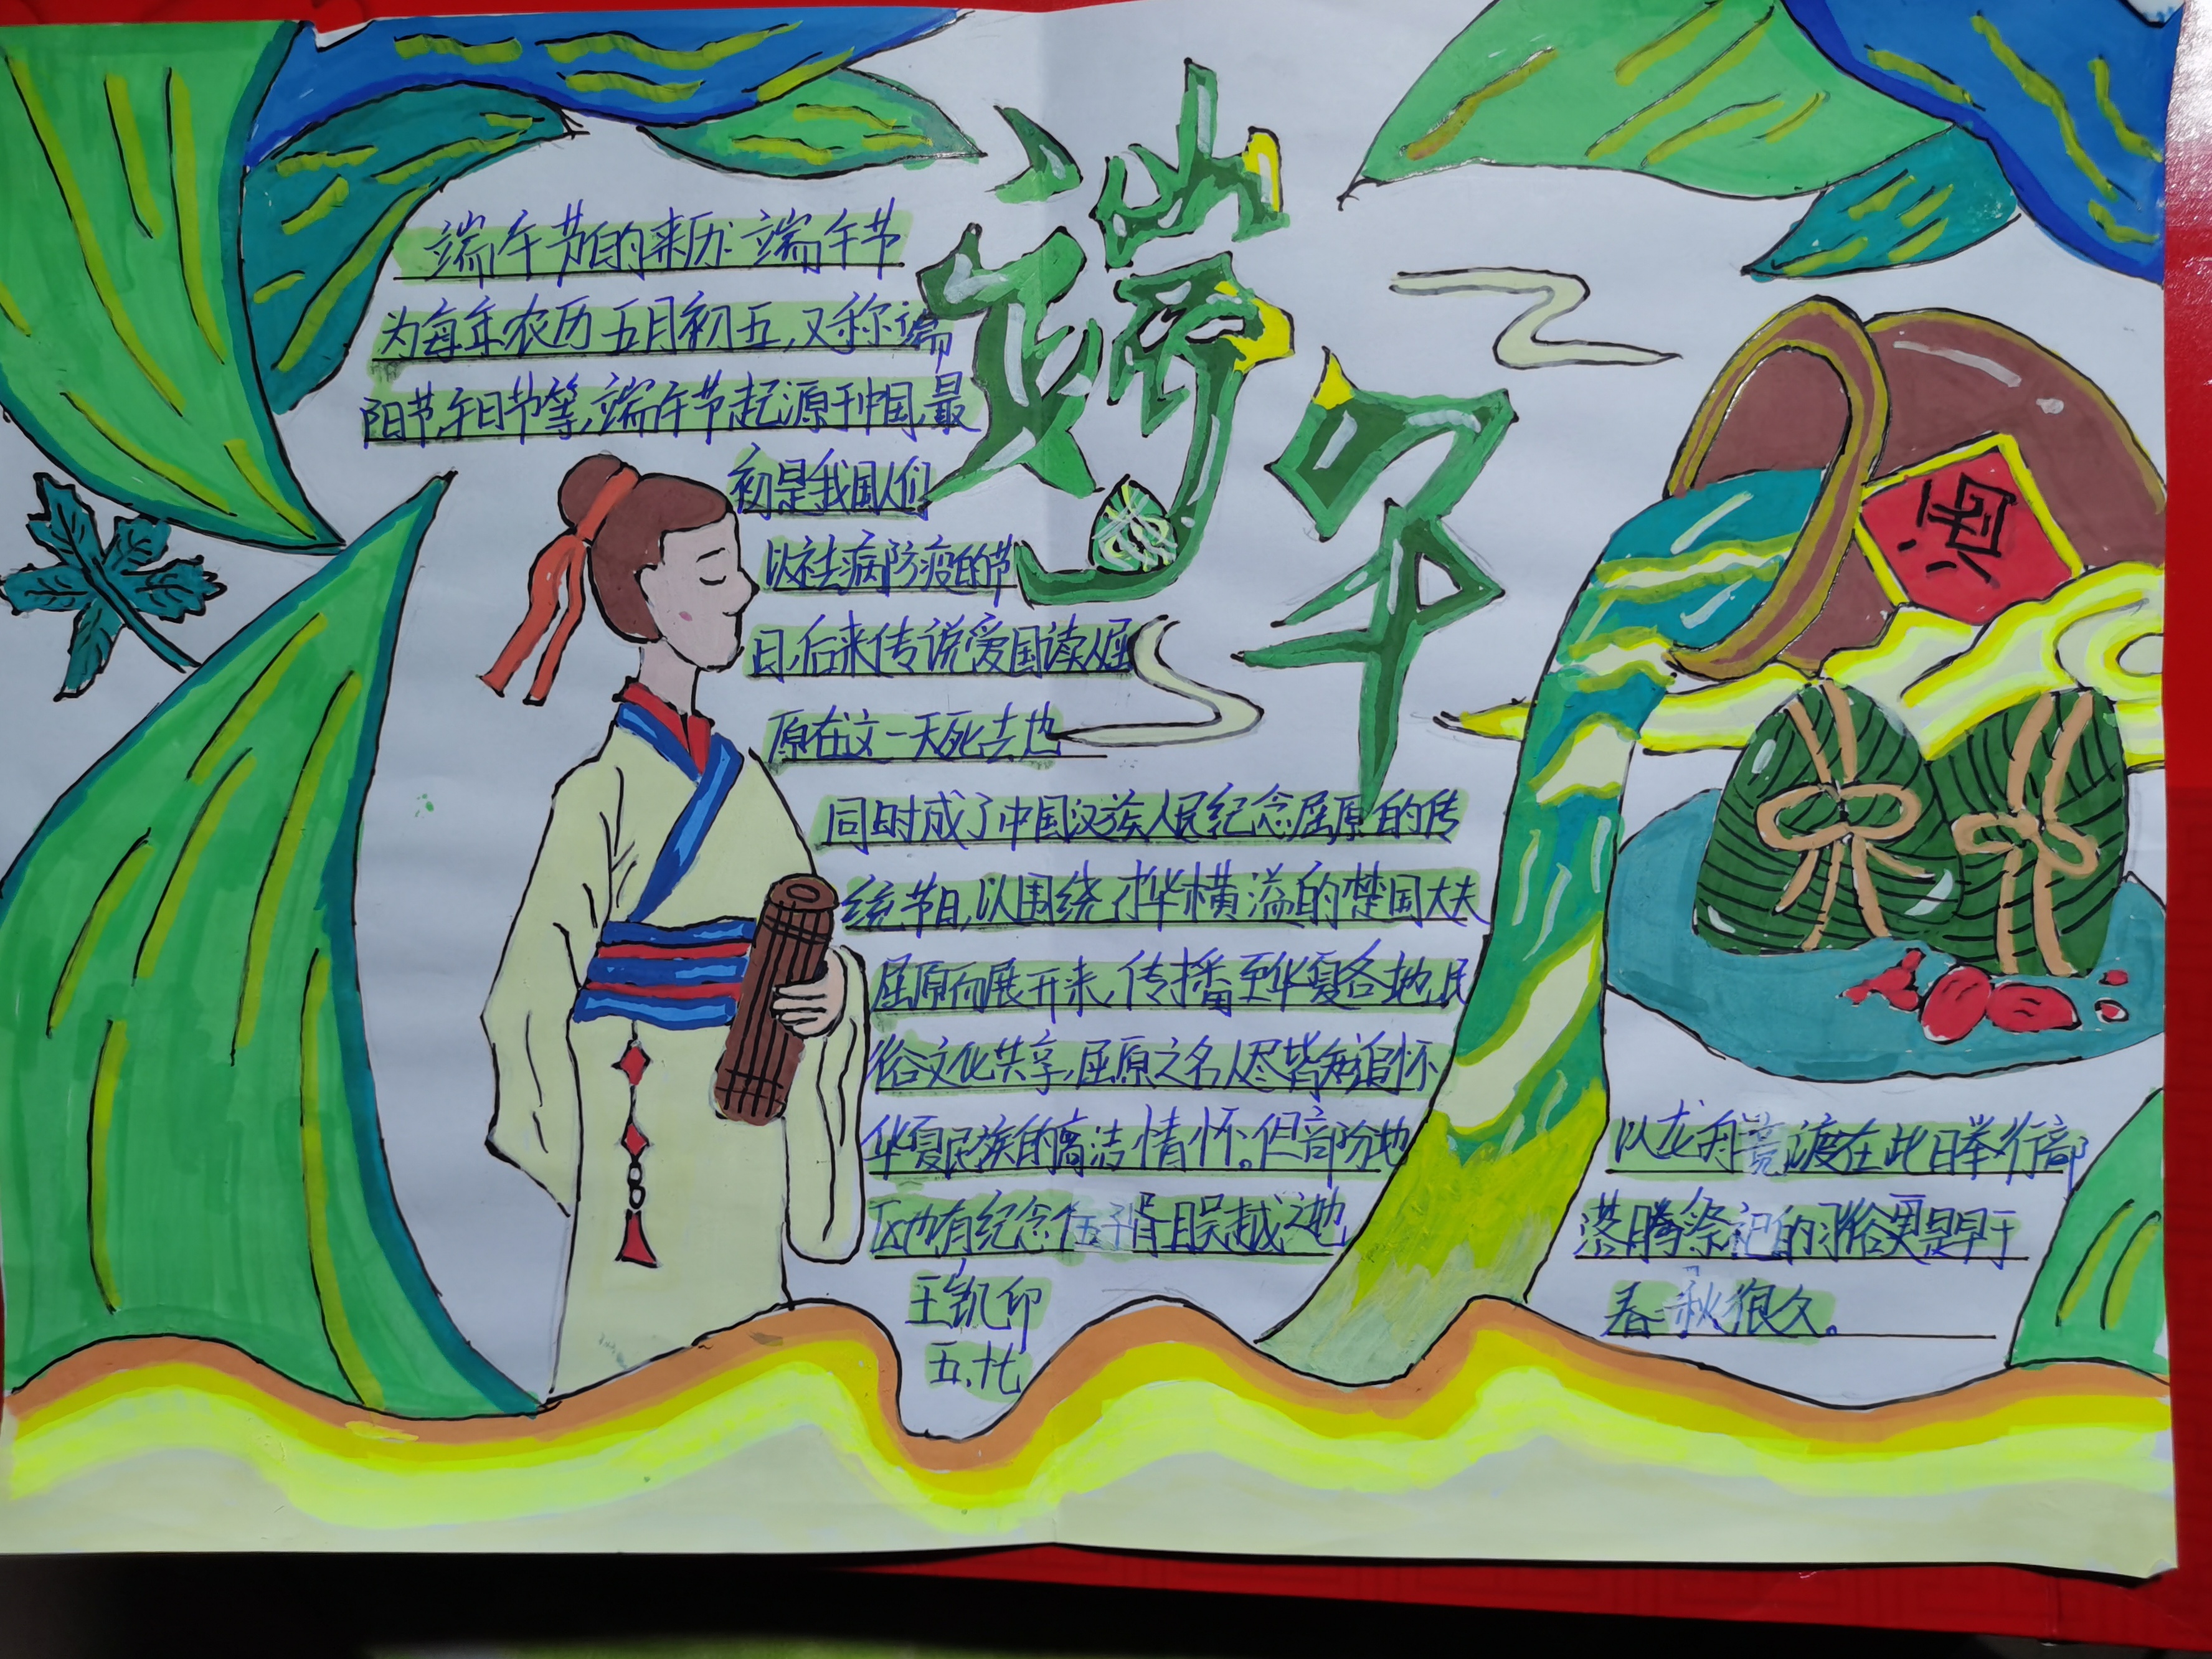 端午
端午节的来历:端午节
为每年农历五月初五,又称端
阳节,午日节等,端午节起源于中国,最
初是我国人们
以祛病防疫的节
日,后来传说爱国读人屈
原在这一天死去,也
同时成了中国汉族人民纪念屈原的传
统节日,以围绕才华横溢的楚国大夫
屈原而展开来,传播至华夏各地,民
俗文化共享,屈原之名人尽皆知追怀
华夏民族的高洁情怀。但部份地
区也有纪念伍子胥且吴越之地
王凯印
五.十七
以龙舟竞渡在此日举行部
落腾祭祀的习俗更是早于
春秋很久。